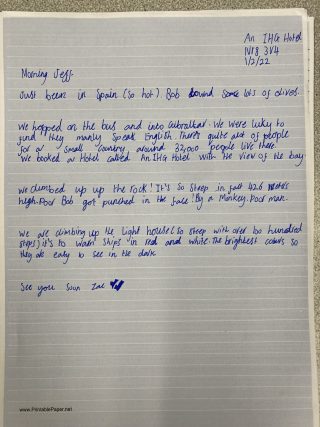 An IHG Hotel
IV18 3V4
1/2/22
Morning Jeff.
Just been in Spain (so hot). Bob found some lots of olives.
We hopped on the bus and into Gibraltar. We were lucky to
find they mainly speak English. There's quite alot of people
for a small country around 32,000 people live there.
We booked a Hotel called An IHG Hotel with the view of the bay
We climbed up up the rock! It's so steep in fact 426 metres
high. Poor Bob got punched in the face! By a Monkey. Poor man.
We are climbing up the Light house (so steep with over 100 hundred
steps) it's to warn ships in red and white. The brightest colours so
they are easy to see in the dark.
See you soon Zac
www.PrintablePaper.net